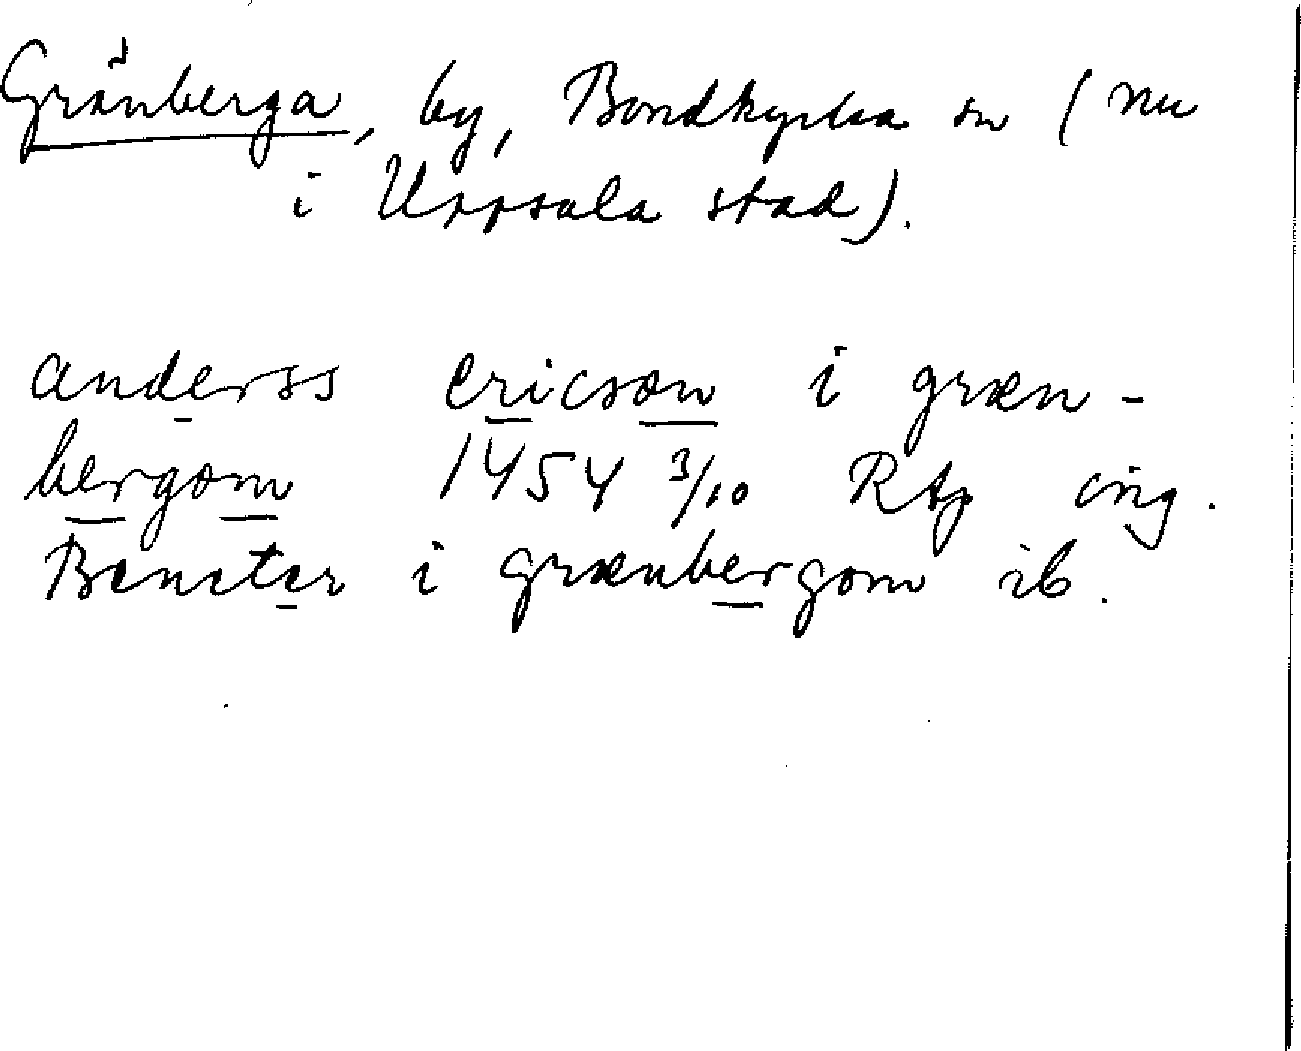 Gränberga, by, Bondkyrka sn (nu
i Uppsala stad).
anderss ericson i græn-
bergom 1454 3/10 RAp ing.
Bencter i grænbergom ib.